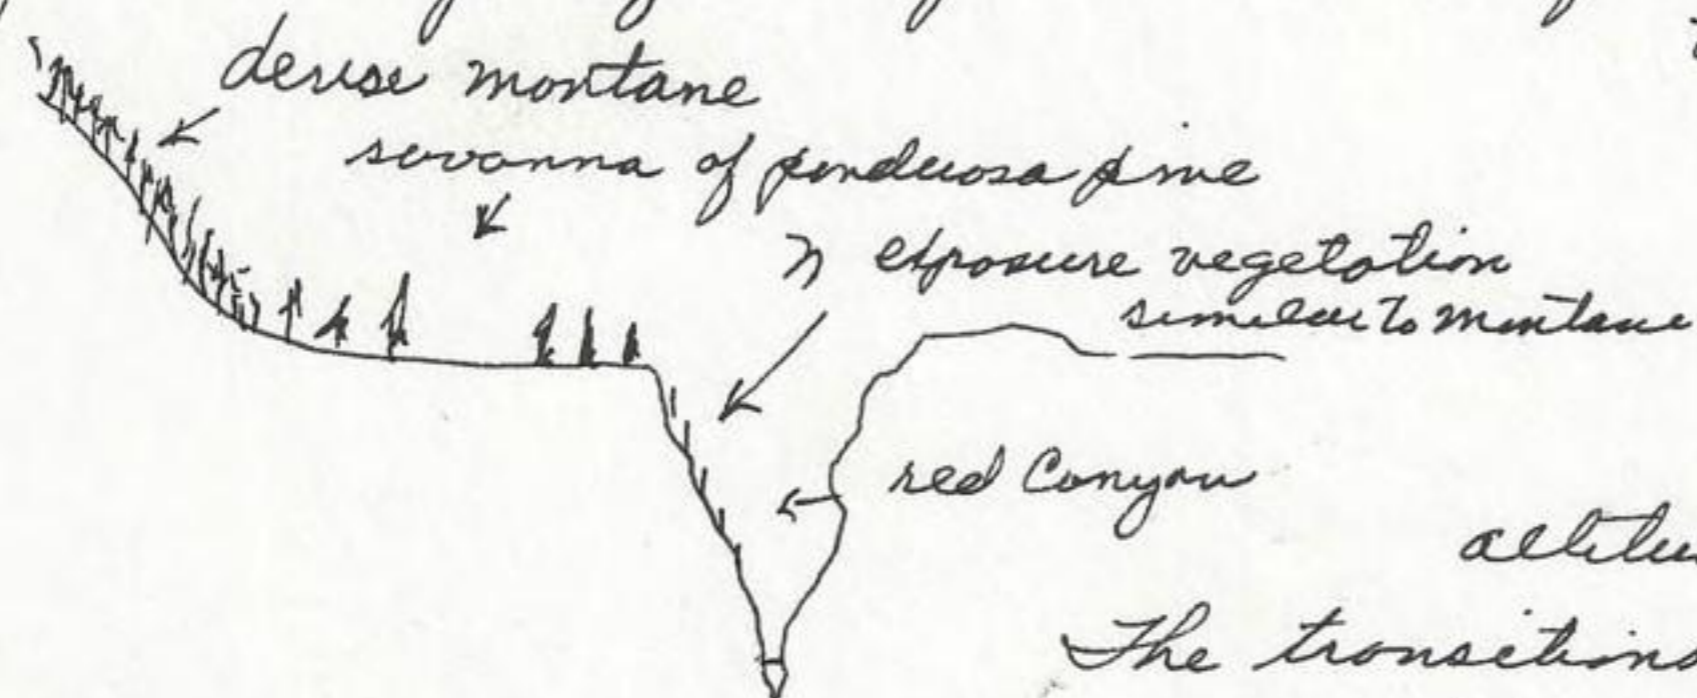 dense montane
savanna of ponderosa pine
N exposure vegetation
similar to montane
red Canyon
The